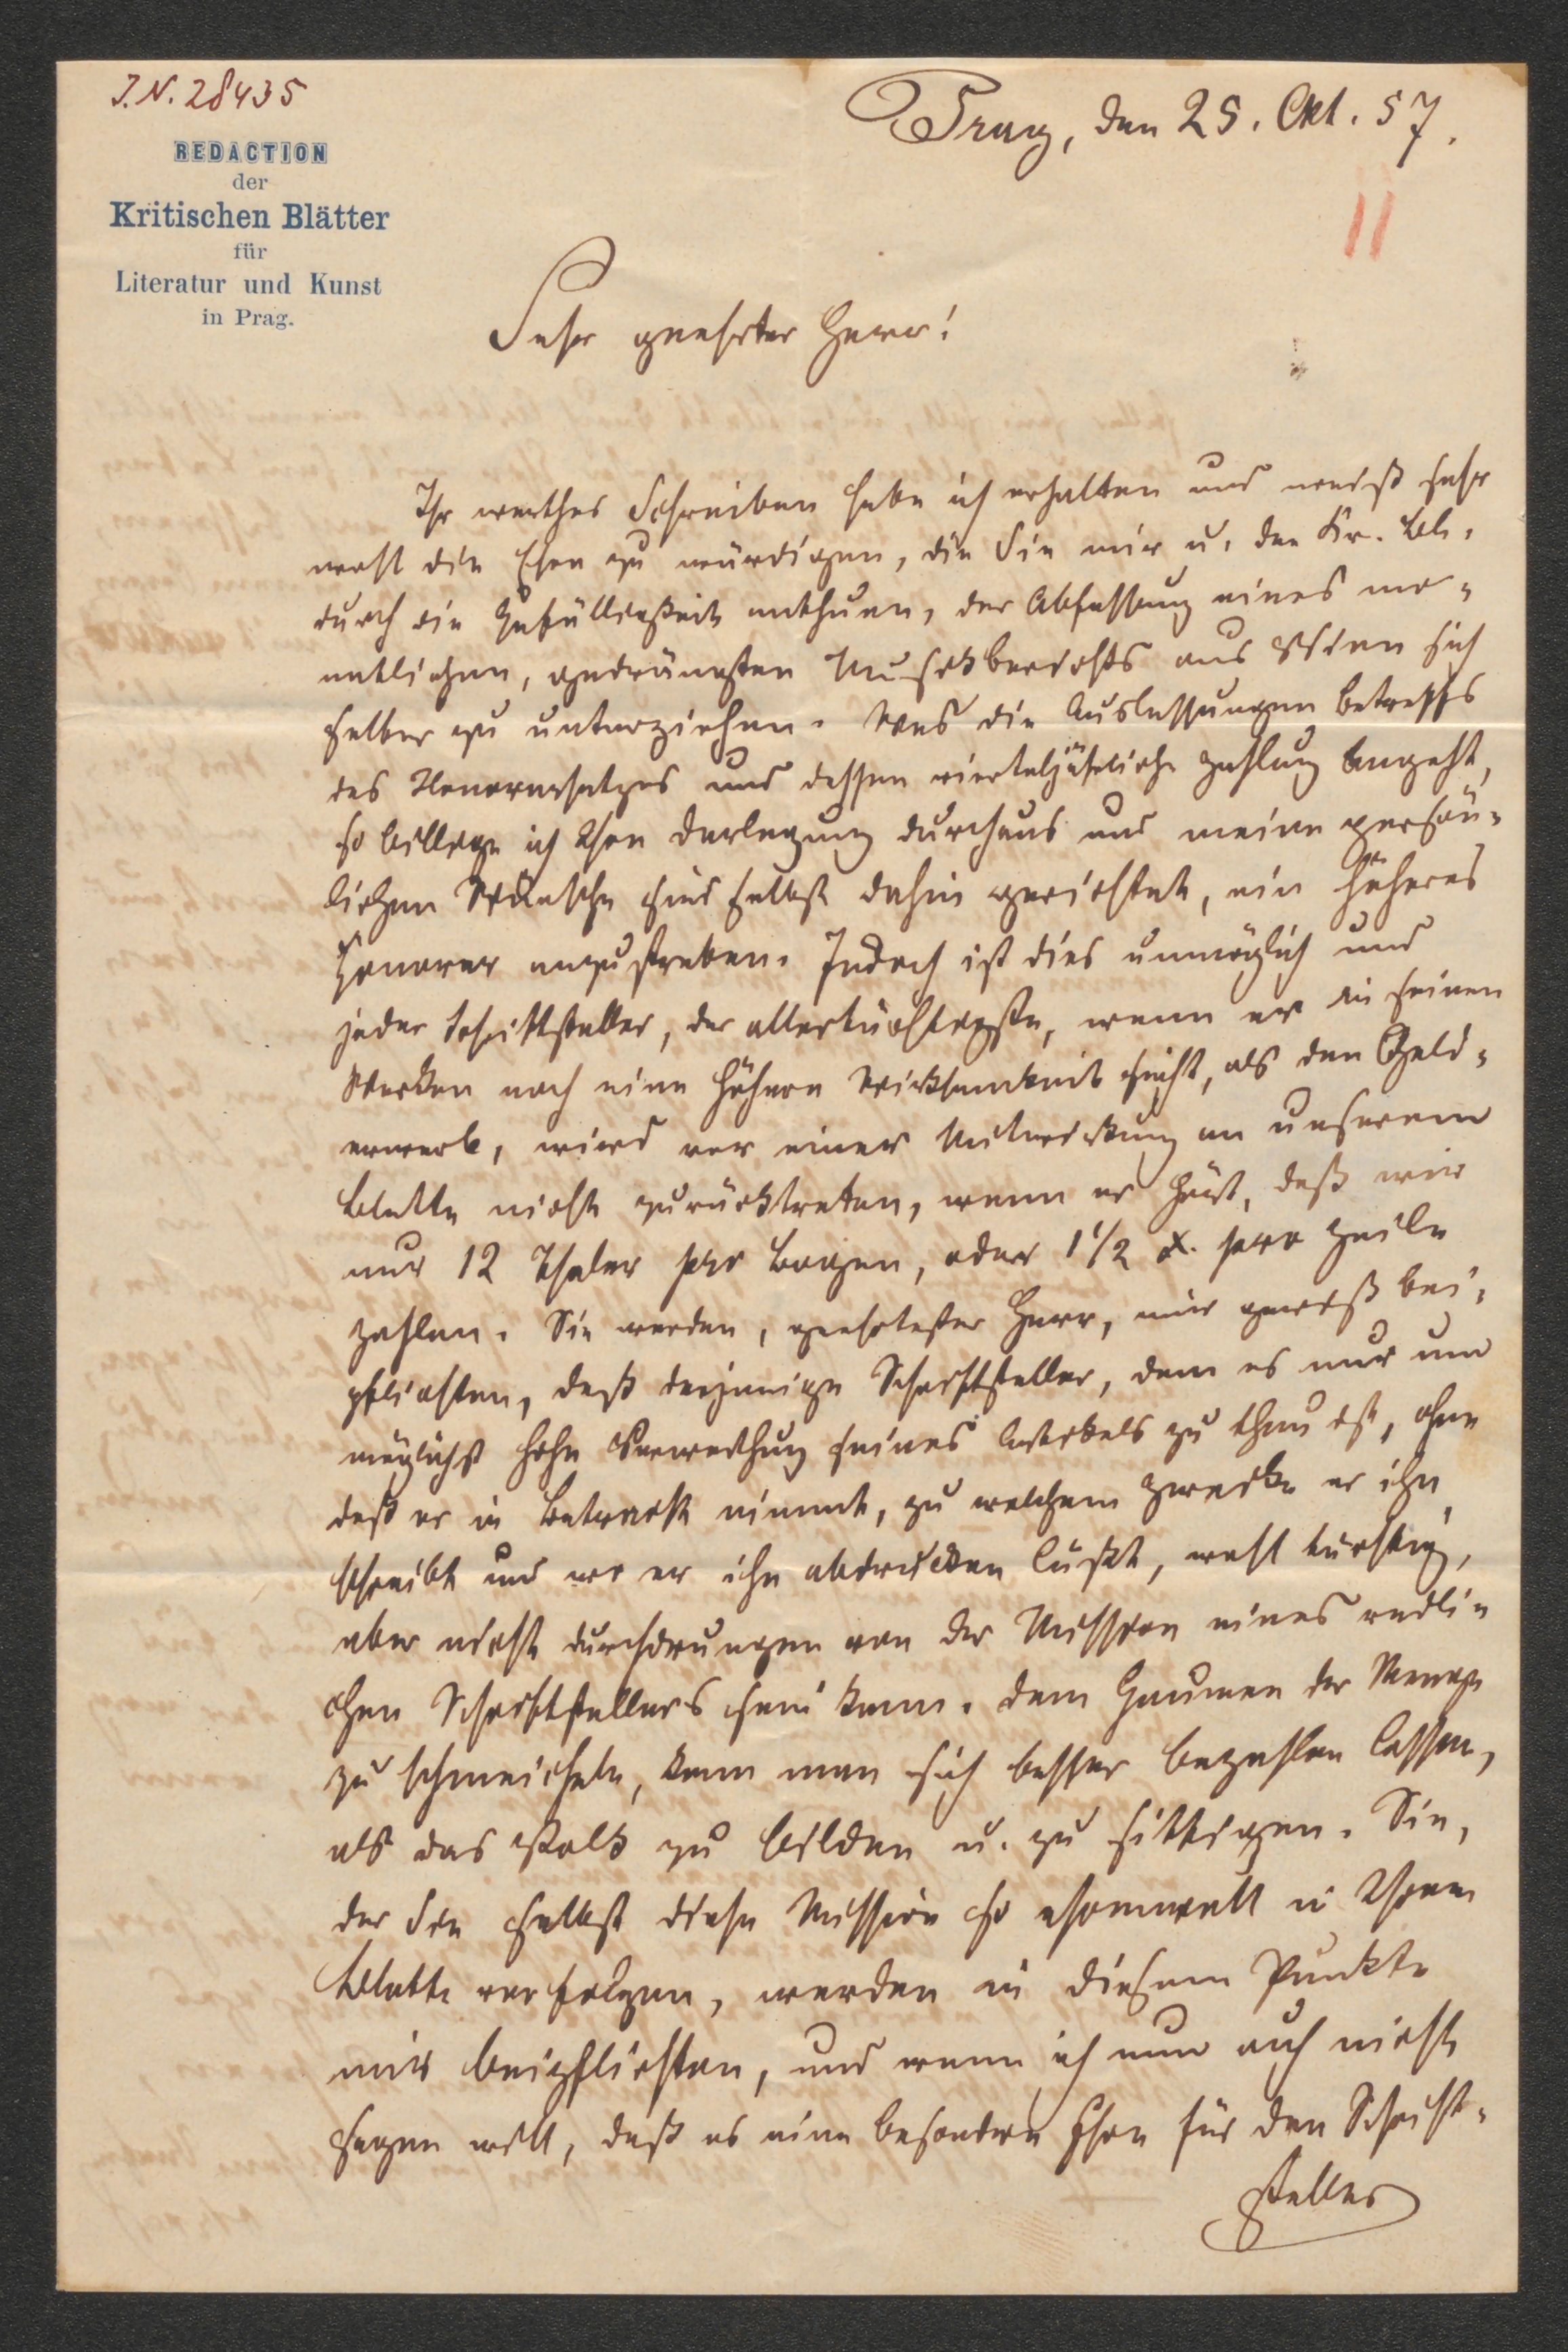 J.N. 28435
REDACTION
der
Kritischen Blätter
für
Literatur und Kunst
in Prag.
Prag, den 25. Okt. 57.
II
Sehr geehrter Herr!
Ihr werthes Schreiben habe ich erhalten und weiß sehr
wohl die Ehre zu würdigen, die Sie mir u. den Kr. Bl.
durch die Gefälligkeit anthuen, der Abfassung eines mo-
natlichen, gedrängten Musikberichts aus Wien sich
selber zu unterziehen. Was die Auslassungen betreffs
des Honorarsatzes und dessen vierteljährliche Zahlung angeht,
so billige ich Ihre Darlegung durchaus und meine persön-
lichen Wünsche sind selbst dahin gerichtet, ein höheres
Honorar anzustreben. Jedoch ist dies unmöglich und
jeder Schriftsteller, der allertüchtigste, wenn er in seinen
Werken noch eine höhere Wirksamkeit sieht, als den Geld-
erwerb, wird vor einer Mitwirkung an unserem
Blatte nicht zurücktreten, wenn er hört, daß wir
nur 12 Thaler pro Bogen, oder 1 1/2 x. pro Zeile
zahlen. Sie werden, geehrtester Herr, mir gewiß bei-
pflichten, daß derjenige Schriftsteller, dem es nur um
möglichst hohe Verwerthung seines Artikels zu thun ist, ohne
daß er in Betracht nimmt, zu welchem Zwecke er ihn
schreibt und wo er ihn abdrucken läßt, wohl tüchtig,
aber nicht durchdrungen von der Mission eines redli-
chen Schriftstellers sein kann. Dem Gaumen der Menge
zu schmeicheln, kann man sich besser bezahlen lassen,
als das Volk zu bilden u. zu sittigen. Sie,
der Sie selbst diese Mission so ehrenvoll in Ihrem
Blatte verfolgen, werden in diesem Punkte
mir beipflichten, und wenn ich nun auch nicht
sagen will, daß es eine besondere Ehre für den Schrift-
steller